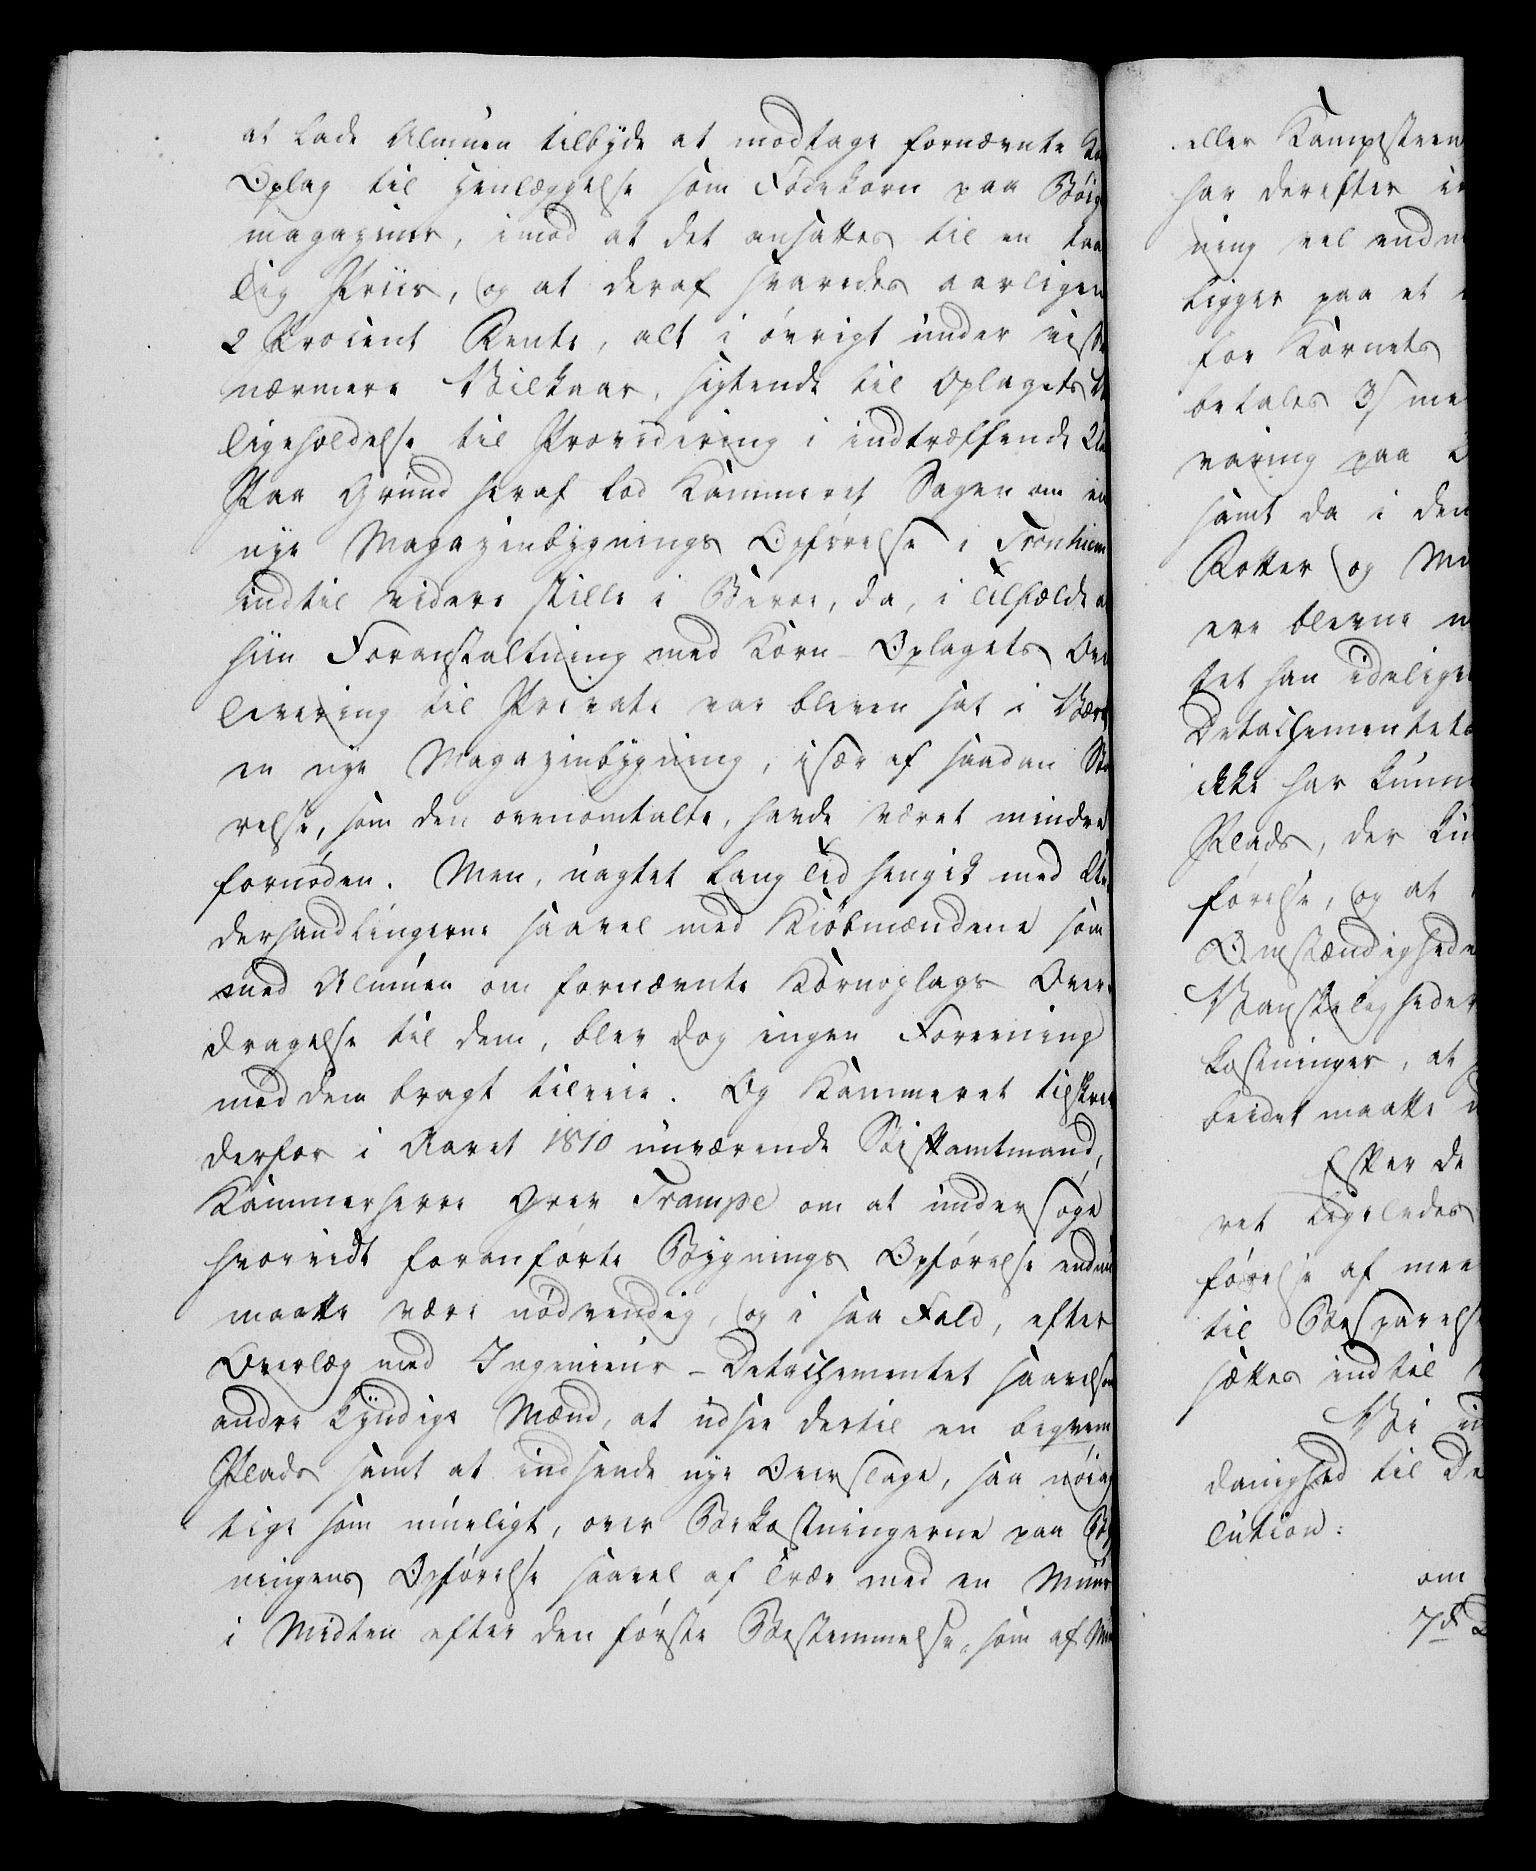 at lade Almuen tilbyde at modtage fornævnte
Oplag til Henlæggelse som Fødekorn paa
magaziner, imod at det ansattes til en
lig Priis, og at deraf svaredes aarligen
2 Procent Rente, alt i övrigt under visse
nærmere Vilkaar, sigtende til Oplagets
ligeholdelse til Providering i indtræffende
Paa Grund heraf lod Kammeret Sagen om en
nye Magazinbygnings Opförelse i Tronhiem
indtil videre stille i Beroe, da, i Tilfælde
hiin Foranstaltning med Korn-Oplagets Over
levering til Private var bleven sat i Værk
en nye Magazinbygning, især af saadan Stø
relse, som den ovenomtalte, havde været mindre
fornöden. Men, uagtet lang Tid hengik med Un
derhandlingerne saavel med Kiöbmændene som
med Almuen om fornævnte Kornoplags Over
dragelse til dem, blev dog ingen Foreening
med dem bragt tilveie. Og Kammeret tilskrev
derfor i Aaret 1810 nuværende Stiftamtmand,
Kammerherre Grev Trampe om at undersöge
hvorvidt foranförte Bygnings Opförelse endnu
maatte være nödvendig, og i saa Fald, efter
Overlæg med Ingenieur-Detachementet saavelsom
andre kyndige Mænd, at udsee dertil en beqvem
Plads samt at indsende nye Overslage, saa nöiag
tige som mueligt, over Bekostningerne paa Byg
ningens Opförelse saavel af Træe med en Muur
i Midten efter den förste Bestemmelse, som af
eller Kampesteen
har derefter
ning vel
ligger paa et
for Kornets
betales 3/ me
varing paa
samt da i den
Rotter og
ere blevne
tet han idelige
Detachementets
ikke har kunne
Plads, der
förelse, og at
Omstændighede
Vanskeligheder
kostninger, at
beidet maatte
Efter de
ret ligeledes
förelse af
til Besparelse
sættes indtil
Vi
danighed til De
lution:
om
7d